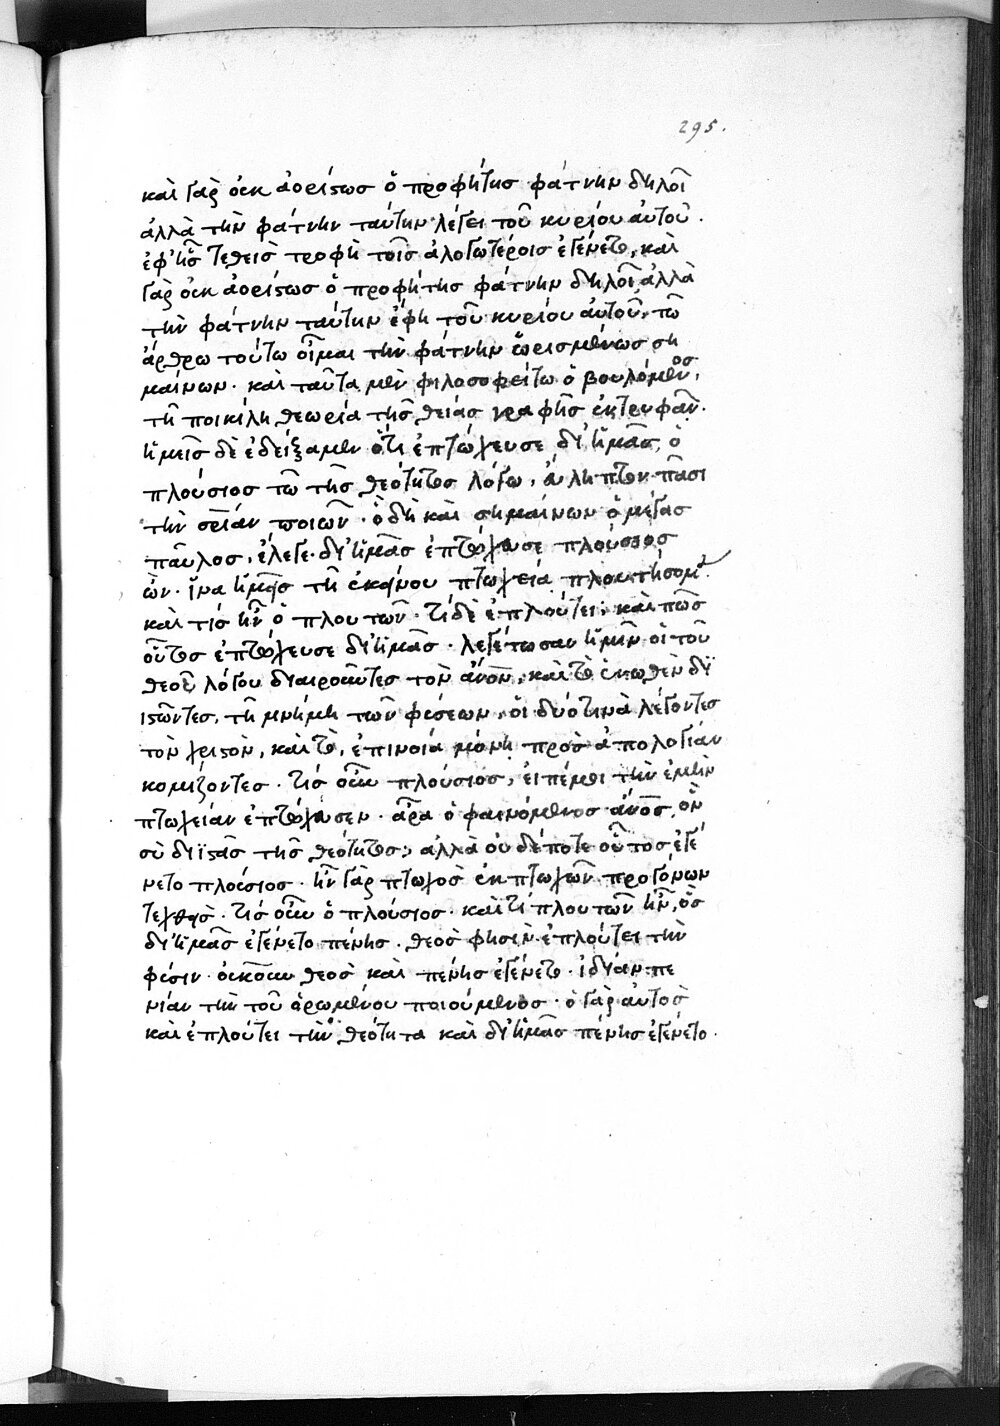 295.
καὶ γὰρ οὐκ ἀορίστως ὁ προφήτης φάτνην δηλοῖ
ἀλλὰ τὴν φάτνην ταύτην λέγει τοῦ κυρίου αὐτοῦ.
ἐφ' ἧς τεθεὶς τροφὴ τοῖς ἀλογωτέροις ἐγένετο, καὶ
γὰρ οὐκ ἀορίστως ὁ προφήτης φάτνην δηλοῖ, ἀλλὰ
τὴν φάτνην ταύτην ἔφη τοῦ κυρίου αὐτοῦ, τῶ
ἄρθρω τούτω οἶμαι τὴν φάτνην ὡρισμένως ση
μαίνων. καὶ ταῦτα μὲν φιλοσοφείτω ὁ βουλόμενος,
τῆ ποικίλη θεωρία τῆς θείας γραφῆς ἐντρυφᾶν.
ἡμεῖς δὲ ἐδείξαμεν ὅτι ἐπτώχευσε δι' ἡμᾶς, ὁ
πλούσιος τῶ τῆς θεότητος λόγω, πᾶσι
τὴν ποιῶν. ὃ δὴ καὶ σημαίνων ὁ μέγας
παῦλος, ἔλεγε. δι' ἡμᾶς ἐπτώχευσε πλούσιος
ὢν. ἵνα ἡμεῖς τῆ ἐκείνου πτωχεία πλουτήσομεν.
καὶ τίς ἦν ὁ πλουτῶν. τί δὲ ἐπλούτει, καὶ πῶς
οὗτος ἐπτώχευσε δι' ἡμᾶς. λεγέτωσαν ἡμῖν οἱ τοῦ
θεοῦ λόγου διαιροῦντες τὸν ἄνον, καὶ τὸ ἑνωθὲν δι
ιστῶντες, τῆ μνήμη τῶν φύσεων. οἱ δύο τινὰ λέγοντες
τὸν χριστὸν, καὶ τὸ, ἐπινοία μόνη πρὸς ἀπολογίαν
κομίζοντες. τίς οὖν πλούσιος, εἰπέ μοι τὴν ἐμὴν
πτωχείαν ἐπτώχευσεν. ἆρα ὁ φαινόμενος ἄνος, ὃν
σὺ διϊστᾶς τῆς θεότητος; ἀλλὰ οὐδέποτε οὗτος ἐγέ
νετο πλούσιος. ἦν γὰρ πτωχὸς ἐκ πτωχῶν προγόνων
τεχθεὶς. τίς οὖν ὁ πλούσιος. καὶ τί πλουτῶν ἦν, ὃς
δι' ἡμᾶς ἐγένετο πένης. θεὸς φησὶν ἐπλούτει τὴν
φύσιν. οὐκοῦν θεὸς καὶ πένης ἐγένετο. ἰδίαν πε
νίαν τὴν τοῦ ὁρωμένου ποιούμενος. ὁ γὰρ αὐτὸς
καὶ ἐπλούτει τὴν θεότητα καὶ δι' ἡμᾶς πένης ἐγένετο.